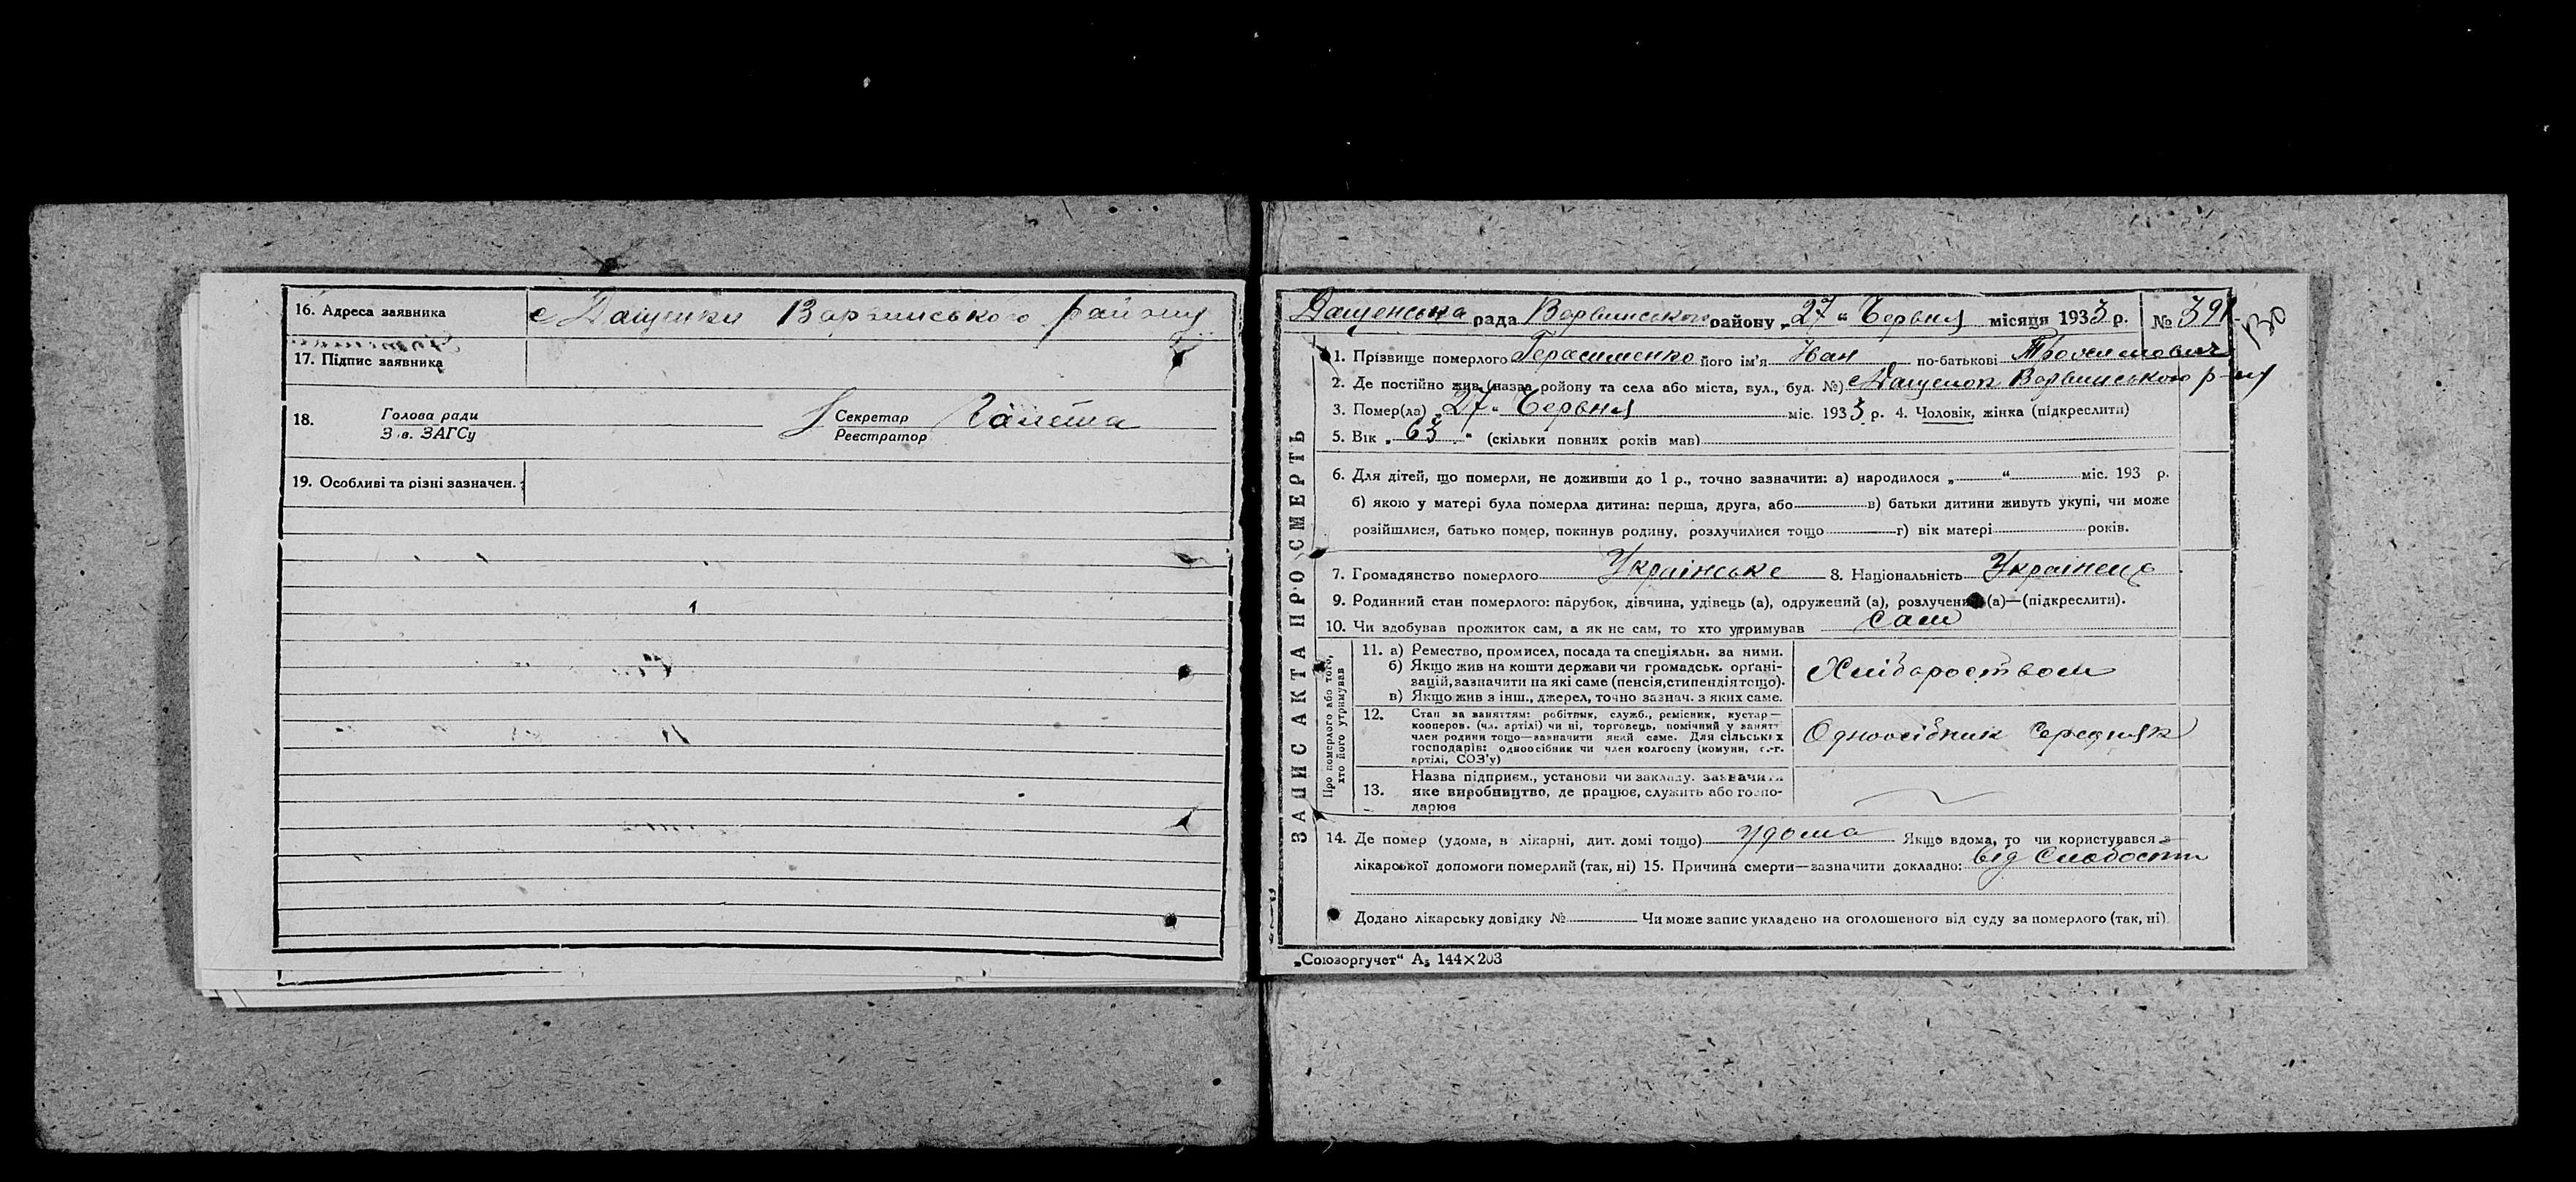 16. Адреса заявника с Дащенки Варвинського району
17. Підпис заявника
18. Голова ради Секретар Галета
З .в. ЗАГСу Реєстратор
19. Особливі та різні зазначен.
Дащенська рада Варвинського району „27“ Червня місяця 1933 р. № 391
130
ЗАПИС АКТА ПРО СМЕРТЬ
1. Прізвище померлого Герасименко його ім'я Іван по-батькові
2. Де постійно жив (назва району та села або міста, вул., буд. №) с Дащенок Варвинського р-ну
3. Помер(ла) „27“ Червня міс. 1933 р. 4. Чоловік, жінка (підкреслити)
5. Вік „63“ (скільки повних років мав)
6. Для дітей, що померли, не доживши до 1 р., точно зазначити: а) народилося „ “ міс. 193 р.
б) якою у матері була померла дитина: перша, друга, або в) батьки дитини живуть укупі, чи може
розійшлися, батько помер, покинув родину, розлучилися тощо г) вік матері років.
7. Громадянство померлого Українське 8. Національність Українець
9. Родинний стан померлого: парубок, дівчина, удівець (а), одружений (а), розлучений (а)—(підкреслити).
10. Чи здобував прожиток сам, а як не сам, то хто утримував Сам
Про померлого або того, хто його утримував
11. а) Ремество, промисел, посада та спеціяльн. за ними.
б) Якщо жив на кошти держави чи громадськ. органі-
зацій, зазначити на які саме (пенсія, стипендія тощо).
в) Якщо жив з інш., джерел, точно зазнач. з яких саме.
Хліборобством
12. Стан за заняттям: робітник, служб., ремісник, кустар—
кооперов. (чл. артілі) чи ні, торговець, помічний у занятт
член родини тощо—зазначити який саме. Для сільських
господарів: одноосібник чи член колгоспу (комуни, с.-г.
артілі, СОЗ'у)
Одноосібник Середняк
13. Назва підприєм., установи чи закладу. зазначити
яке виробництво, де працює, служить або госпо-
дарює
14. Де помер (удома, в лікарні, дит. домі тощо) удома Якщо вдома, то чи користувався з
лікарської допомоги померлий (так, ні) 15. Причина смерти—зазначити докладно: від слабости
Додано лікарську довідку № Чи може запис укладено на оголошеного від суду за померлого (так, ні).
„Союзоргучет“ А5 144×203